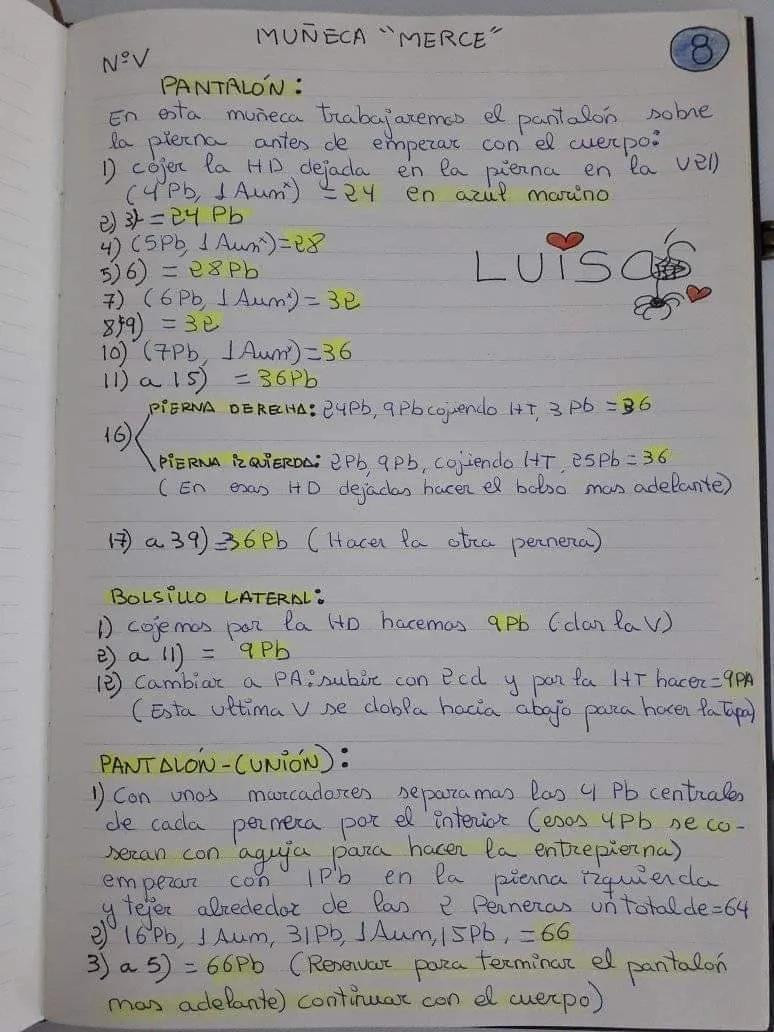 MUÑECA "MERCE"
8
NºV
PANTALÓN:
En esta muñeca trabajaremos el pantalón sobre
la pierna antes de emperar con el cuerpo:
1) cojer la HD dejada en la pierna en la V21)
(4Pb, 1Aumˣ) = 24 en azul marino
2) 3) = 24 Pb
4) (5Pb, 1Aumˣ) = 28
5) 6) = 28Pb
7) (6Pb, 1Aumˣ) = 32
8) 9) = 32
10) (7Pb, 1Aumˣ) = 36
11) a 15) = 36Pb
LUISA
16)
PIERNA DERECHA: 24Pb, 9Pb cojiendo HT, 3Pb = 36
PIERNA IZQUIERDA: 2Pb, 9Pb, cojiendo HT, 25Pb = 36
(En esas HD dejadas hacer el bolso mas adelante)
17) a 39) = 36Pb (Hacer la otra pernera)
BOLSILLO LATERAL:
1) cojemos por la HD hacemos 9Pb (dar la V)
2) a 11) = 9Pb
12) Cambiar a PA: subir con 2cd y por la HT hacer = 9PA
(Esta ultima V se dobla hacia abajo para hacer la Tapa)
PANTALÓN-(UNIÓN):
1) Con unos marcadores separamas las 4 Pb centrales
de cada pernera por el interior (esos 4Pb se co-
seran con aguja para hacer la entrepierna)
emperar con 1Pb en la pierna izquierda
y tejer alrededor de las 2 Perneras un total de = 64
2) 16Pb, 1Aum, 31Pb, 1Aum, 15Pb, = 66
3) a 5) = 66Pb (Reservar para terminar el pantalón
mas adelante) continuar con el cuerpo)